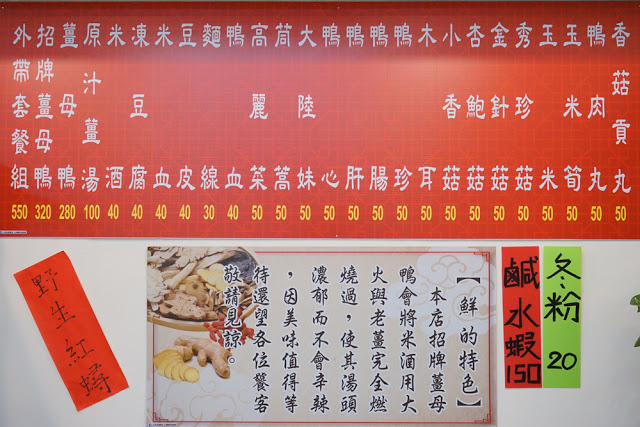 外帶套餐組 550
招牌薑母鴨 320
薑母鴨 280
原汁薑湯 100
米酒 40
凍豆腐 40
米血 40
豆皮 40
麵線 30
鴨血 40
高麗菜 50
茼蒿 50
大陸妹 50
鴨心 50
鴨肝 50
鴨腸 50
鴨珍 50
木耳 50
小香菇 50
杏鮑菇 50
金針菇 50
秀珍菇 50
玉米 50
玉米筍 50
鴨肉丸 50
香菇貢丸 50
野生紅蟳
【鮮的特色】
本店招牌薑母
鴨會將米酒用大
火與老薑完全燃
燒過，使其湯頭
濃郁而不會辛辣
，因美味值得等
待還望各位饕客
敬請見諒。
鹹水蝦 150
冬粉 20